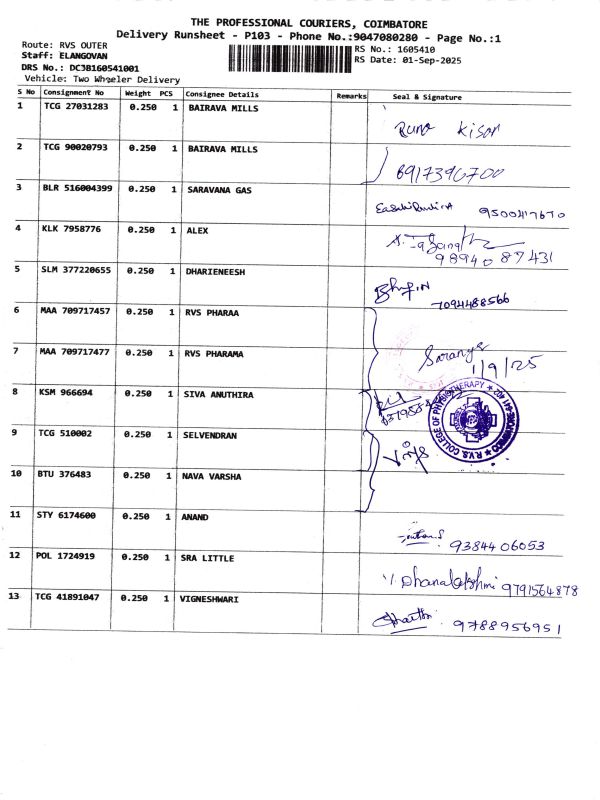 THE PROFESSIONAL COURIERS, COIMBATORE
Delivery Runsheet - P103 - Phone No.:9047080280 - Page No.:1
Route: RVS OUTER
RS No.: 1605410
Staff: ELANGOVAN
RS Date: 01-Sep-2025
DRS No.: DC3B160541001
Vehicle: Two Wheeler Delivery
S No Consignment No Weight PCS Consignee Details Remarks Seal & Signature
1 TCG 27031283 0.250 1 BAIRAVA MILLS
Kisor
2 TCG 90020793 0.250 1 BAIRAVA MILLS
8917396700
3 BLR 516004399 0.250 1 SARAVANA GAS
9500417670
4 KLK 7958776 0.250 1 ALEX
98940 87431
5 SLM 377220655 0.250 1 DHARIENEESH
7094488566
6 MAA 709717457 0.250 1 RVS PHARAA
7 MAA 709717477 0.250 1 RVS PHARAMA
Saranya
1/9/25
8 KSM 966694 0.250 1 SIVA ANUTHIRA
R.V.S. COLLEGE OF PHYSIOTHERAPY ★ COIMBATORE-641 402 ★
9 TCG 510002 0.250 1 SELVENDRAN
10 BTU 376483 0.250 1 NAVA VARSHA
11 STY 6174600 0.250 1 ANAND
9384406053
12 POL 1724919 0.250 1 SRA LITTLE
Dhanalakshmi 9791564878
13 TCG 41891047 0.250 1 VIGNESHWARI
9788956951